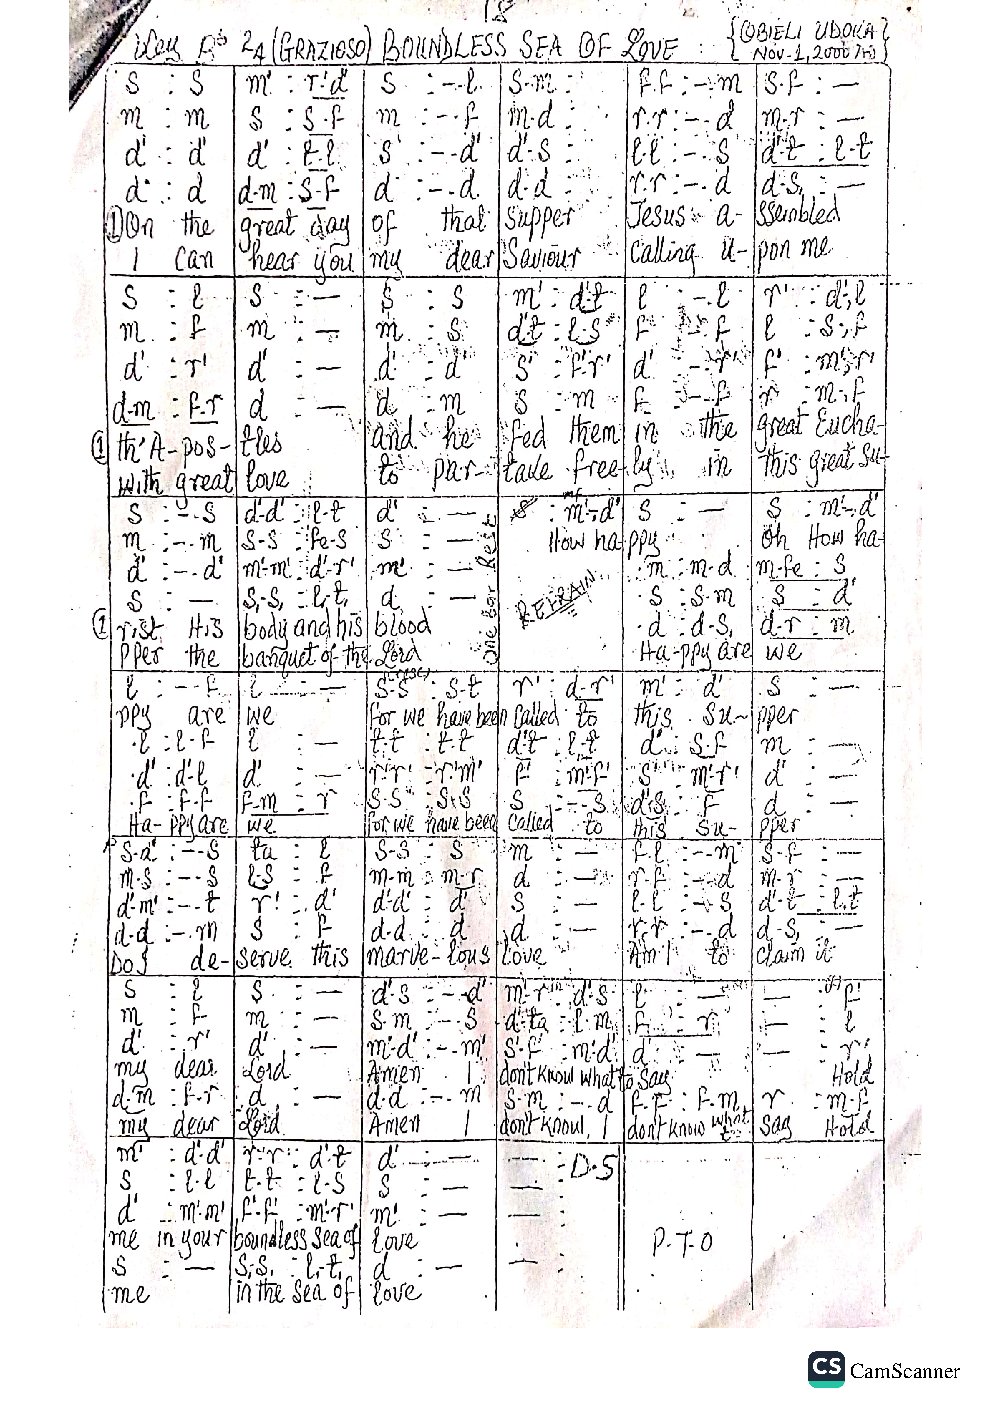 18
Key 2/4 (GRAZIOSO) BOUNDLESS SEA OF LOVE {OBIELI UDOKA Nov-1, 2000
s : s | m' : r'.d' | s : -.l | s.m : | f.f : -.m | s.f : —
m : m | s : s.f | m : -.f | m.d : | r.r : -.d | m.r : —
d' : d' | d' : t.l | s' : -.d' | d'.s : | l.l : -.s | d'.t : l.t
d : d | d.m : s.f | d : -.d | d.d : | r.r : -.d | d.s, : —
① On the | great day | of that | supper | Jesus a- | ssembled
I can | hear you | my dear | Saviour | calling u- | pon me
s : l | s : — | s : s | m' : d'.t | l : -.l | r' : d'.,l
m : f | m : — | m : s | d'.t : l.s | f : -.f | l : s.,f
d' : r' | d' : — | d' : d' | s' : f'.r' | d' : -.r' | f' : m'.,r'
d.m : f.r | d : — | d : m | s : m | f : -.f | r : m.,f
① th' A-pos- | tles | and he | fed them | in the | great Eucha-
with great | love | to par- | take free- | ly in | this great su-
s : -.s | d'.d' : l.t | d' : — | : m'-.d' | s : — | s : m'-.d'
m : -.m | s.s : fe.s | s : — | How ha- | ppy | Oh How ha-
d' : -.d' | m'.m' : d'.r' | m' : — | | .m : m.d | m.fe : s
s : — | s,.s, : l,.t, | d : — | REFRAIN | .s : s.m | s : d'
① rist His | body and his | blood | | .d : d.s, | d.r : m
pper the | banquet of the | Lord | One bar Rest | Ha-ppy are | we
l : -.f | l : — | s.s : s.t | r' : d'.r' | m' : d' | s : —
ppy are | we | for we have been | called to | this su- | pper
.l : l.f | l : — | t.t : t.t | d'.t : l.t | d' : s.f | m : —
.d' : d'.l | d' : — | r'.r' : r'.m' | f' : m'.f' | s' : m'.r' | d' : —
.f : f.f | f.m : r | s.s : s.s | s : -.s | d'.s : f | d : —
Ha-ppy are | we | for we have been | called to | this su- | pper
s.d' : -.s | ta : l | s.s : s | m : — | f.l : -.m | s.f : —
m.s : -.s | l.s : f | m.m : m.r | d : — | r.f : -.d | m.r : —
d'.m' : -.t | r' : d' | d'.d' : d' | s : — | l.l : -.s | d'.t : l.t
d.d : -.m | s : f | d.d : d | d : — | r.r : -.d | d.s, : —
Do I de- | serve this | marve-lous | love | Am I to | claim it
s : l | s : — | d'.s : -.d' | m'.r' : d'.s | l : — | — : f'
m : f | m : — | s.m : -.s | d'.ta : l.m | f : r | — : l
d' : r' | d' : — | m'.d' : -.m' | s'.f' : m'.d' | d' : — | — : r'
my dear | Lord | Amen I | don't know what to | say | Hold
d.m : f.r | d : — | d.d : -.m | s.m : -.d | f.f : f.m | r : m.f
my dear | Lord | Amen I | don't know, I | don't know what | say Hold
m' : d'.d' | r'.r' : d'.t | d' : — | — : D.S
s : l.l | t.t : l.s | s : — | — :
d' : m'.m' | f'.f' : m'.r' | m' : — | — :
me in your | boundless sea of | love | | P.T.O
s : — | s,.s, : l,.t, | d : — | — :
me | in the sea of | love
CS CamScanner